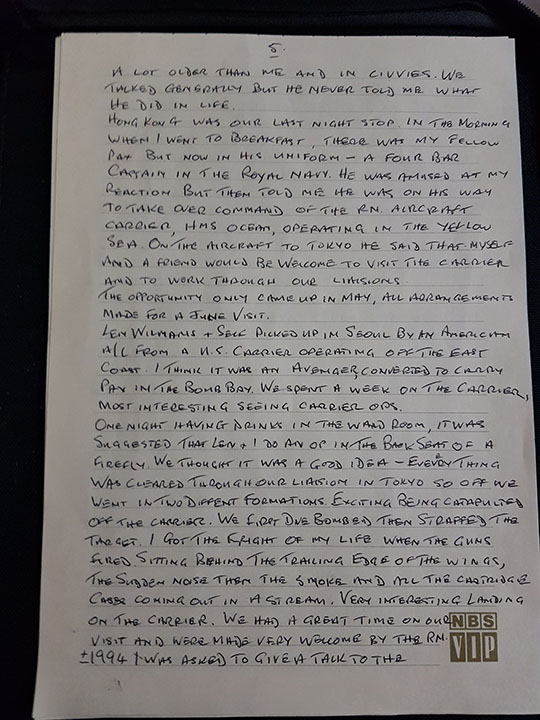 5.
A LOT OLDER THAN ME AND IN CIVVIES. WE
TALKED GENERALLY BUT HE NEVER TOLD ME WHAT
HE DID IN LIFE.
HONG KONG WAS OUR LAST NIGHT STOP. IN THE MORNING
WHEN I WENT TO BREAKFAST, THERE WAS MY FELLOW
PAX BUT NOW IN HIS UNIFORM – A FOUR BAR
CAPTAIN IN THE ROYAL NAVY. HE WAS AMUSED AT MY
REACTION BUT THEN TOLD ME HE WAS ON HIS WAY
TO TAKE OVER COMMAND OF THE RN. AIRCRAFT
CARRIER, HMS OCEAN, OPERATING IN THE YELLOW
SEA. ON THE AIRCRAFT TO TOKYO HE SAID THAT MYSELF
AND A FRIEND WOULD BE WELCOME TO VISIT THE CARRIER
AND TO WORK THROUGH OUR LIAISIONS.
THE OPPORTUNITY ONLY CAME UP IN MAY, ALL ARRANGEMENTS
MADE FOR A JUNE VISIT.
LEN WILMANS + SELF PICKED UP IN SEOUL BY AN AMERICAN
A/C FROM A U.S. CARRIER OPERATING OFF THE EAST
COAST. I THINK IT WAS AN AVENGER, CONVERTED TO CARRY
PAX IN THE BOMB BAY. WE SPENT A WEEK ON THE CARRIER,
MOST INTERESTING SEEING CARRIER OPS.
ONE NIGHT HAVING DRINKS IN THE WARD ROOM, IT WAS
SUGGESTED THAT LEN + I DO AN OP IN THE BACK SEAT OF A
FIREFLY. WE THOUGHT IT WAS A GOOD IDEA – EVERYTHING
WAS CLEARED THROUGH OUR LIAISION IN TOKYO SO OFF WE
WENT IN TWO DIFFENT FORMATIONS. EXCITING BEING CATAPULTED
OFF THE CARRIER. WE FIRST DIVE BOMBED THEN STRAFFED THE
TARGET. I GOT THE FRIGHT OF MY LIFE WHEN THE GUNS
FIRED SITTING BEHIND THE TRAILING EDGE OF THE WINGS,
THE SUDDEN NOISE THEN THE SMOKE AND ALL THE CARTRIDGE
CASES COMING OUT IN A STREAM. VERY INTERESTING LANDING
ON THE CARRIER. WE HAD A GREAT TIME ON OUR
VISIT AND WERE MADE VERY WELCOME BY THE RN.
±1994 I WAS ASKED TO GIVE A TALK TO THE
NBS
VIP